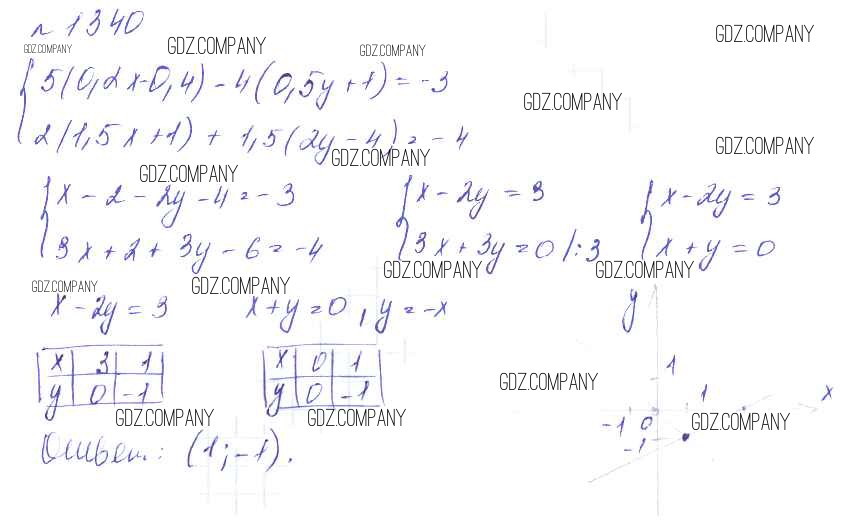 № 1340
GDZ.COMPANY GDZ.COMPANY GDZ.COMPANY GDZ.COMPANY
5(0,2x-0,4) - 4(0,5y+1) = -3
GDZ.COMPANY
2(1,5x+1) + 1,5(2y-4) = -4
GDZ.COMPANY GDZ.COMPANY GDZ.COMPANY
x - 2 - 2y - 4 = -3 x - 2y = 3 x - 2y = 3
3x + 2 + 3y - 6 = -4 3x + 3y = 0 /:3 x + y = 0
GDZ.COMPANY GDZ.COMPANY GDZ.COMPANY GDZ.COMPANY
x - 2y = 3 x + y = 0, y = -x y
x 3 1 x 0 1 1
y 0 -1 y 0 -1 GDZ.COMPANY 1 x
GDZ.COMPANY GDZ.COMPANY -1 0 GDZ.COMPANY
Ответ: (1; -1). -1